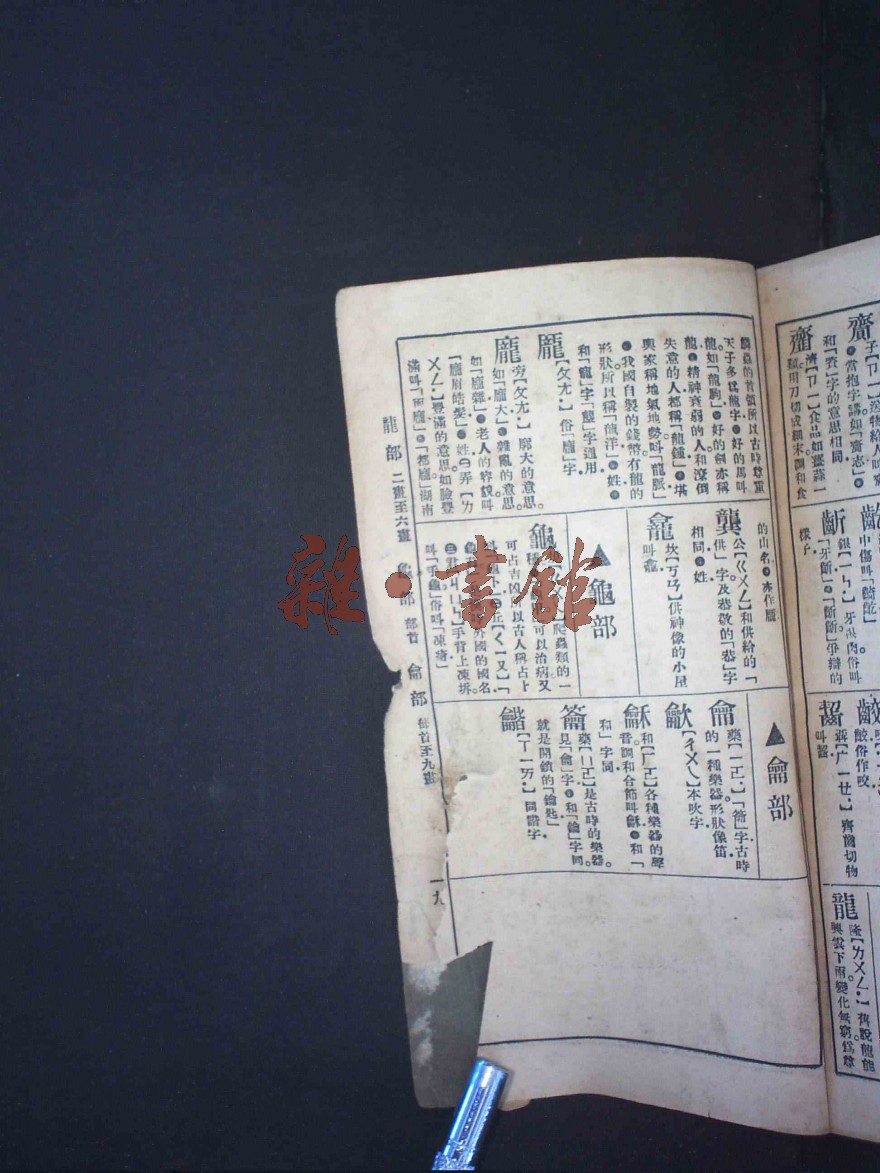 齎
子【ㄗㄧ】送物給人叫齎
●當抱字講如「齎志」●
和「賫」字的意思相同
齏
濟【ㄗㄧ】食品如薑蒜一
類用刀切成細末調和食
齗
銀【ㄧㄣ】牙根肉俗叫
「牙齗」●「齗齗」爭辯的
樣子
齩
齩俗作咬
齧
叫齧
龍
隆【ㄌㄨㄥ】舊說龍能
興雲下雨變化無窮爲
鱗蟲的首領所以古時尊重
天子多爲龍字●好的劍亦稱
龍。如「龍駒」●好的馬叫
龍●精神衰弱的人和潦倒
失意的人都稱「龍鍾」●堪
輿家稱地氣地勢叫「龍脈」
●我國自製的錢幣有龍的
形狀所以稱「龍洋」●姓●
和「寵」字「壟」字通用
龎
【ㄆㄤ】俗「龐」字
龐
旁【ㄆㄤ】廓大的意思。
如「龐大」●雜亂的意思。
如「龐雜」●老人的容貌叫
「龐眉皓髮」●姓㊁弄【ㄌ
ㄨㄥ】豐滿的意思如臉豐
滿叫「面龐」●「都龐」湖南
的山名●亦作龎
龔
公【ㄍㄨㄥ】和供給的「
供」字。及恭敬的「恭」字
相同●姓
龕
坎【ㄎㄢ】供神像的小屋
叫龕
▲龜部
龜
爬蟲類的一
可以治病又
可占吉凶
以古人稱占卜
丘【ㄑㄧㄡ】「
外國的國名
手背上凍坼
叫「手龜」俗叫「凍瘡」
▲龠部
龠
藥【ㄧㄛ】「籥」字古時
的一種樂器形狀像笛
龡
【ㄔㄨㄟ】本吹字
龢
和【ㄏㄛ】各種樂器的聲
音調和合節叫龢●和「
和」字同
籥
藥【ㄩㄛ】是古時的樂器。
見「龠」字●和「鑰」字同
就是開鎖的「鑰匙」
龤
【ㄒㄧㄞ】同諧字
龍部 二畫至六畫 龜部 部首 龠部 部首至九畫
一九
雜·書館